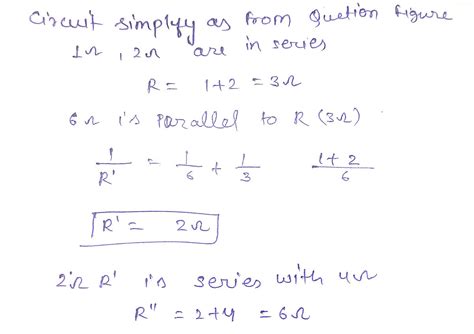 Circuit simplfy as from Quetion figure
1Ω , 2Ω are in series
R = 1+2 = 3Ω
6Ω is parallel to R (3Ω)
1/R' = 1/6 + 1/3 1+2/6
R' = 2Ω
2Ω R' is series with 4Ω
R" = 2+4 = 6Ω